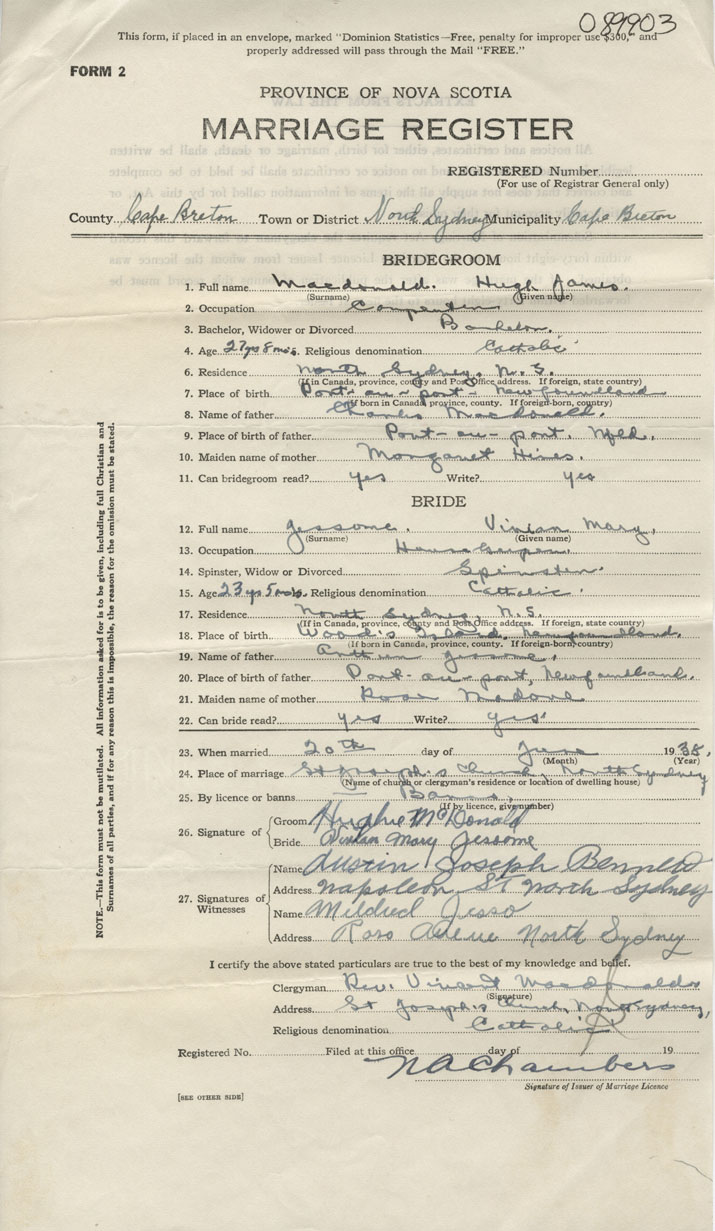 089903
This form, if placed in an envelope, marked "Dominion Statistics—Free, penalty for improper use $300," and
properly addressed will pass through the Mail "FREE."
FORM 2
PROVINCE OF NOVA SCOTIA
MARRIAGE REGISTER
REGISTERED Number
(For use of Registrar General only)
County Cape Breton Town or District North Sydney Municipality Cape Breton
BRIDEGROOM
1. Full name Macdonald. Hugh James.
(Surname) (Given name)
2. Occupation Carpenter
3. Bachelor, Widower or Divorced Bachelor.
4. Age 27 yrs 8 mos. Religious denomination Catholic
6. Residence North Sydney, N.S.
(If in Canada, province, county and Post Office address. If foreign, state country)
7. Place of birth Port-au-port Newfoundland
(If born in Canada, province, county. If foreign-born, country)
8. Name of father Charles Macdonald.
9. Place of birth of father Port-au-port, Nfld.
10. Maiden name of mother Margaret Hines.
11. Can bridegroom read? yes Write? yes
BRIDE
12. Full name Jessome. Vivian Mary.
(Surname) (Given name)
13. Occupation Housekeeper.
14. Spinster, Widow or Divorced Spinster.
15. Age 23 yrs 5 mos. Religious denomination Catholic.
17. Residence North Sydney, N.S.
(If in Canada, province, county and Post Office address. If foreign, state country)
18. Place of birth Wood's Island, Newfoundland.
(If born in Canada, province, county. If foreign-born, country)
19. Name of father Arthur Jessome.
20. Place of birth of father Port-au-port, Newfoundland.
21. Maiden name of mother Rose
22. Can bride read? yes Write? yes
23. When married 20th day of June 1938.
(Month) (Year)
24. Place of marriage St Joseph's Church, North Sydney
(Name of church or clergyman's residence or location of dwelling house)
25. By licence or banns Banns.
(If by licence, give number)
26. Signature of
Groom Hughie McDonald
Bride Vivian Mary Jessome
27. Signatures of Witnesses
Name Austin Joseph Bennett
Address Napoleon St North Sydney
Name Mildred Jesso
Address North Sydney
I certify the above stated particulars are true to the best of my knowledge and belief.
Clergyman Rev. Vincent Macdonald
(Signature)
Address St Joseph's Church, North Sydney,
Religious denomination Catholic
Registered No. Filed at this office day of 19
N A Chambers
Signature of Issuer of Marriage Licence
[SEE OTHER SIDE]
NOTE.—This form must not be mutilated. All information asked for is to be given, including full Christian and
Surnames of all parties, and if for any reason this is impossible, the reason for the omission must be stated.